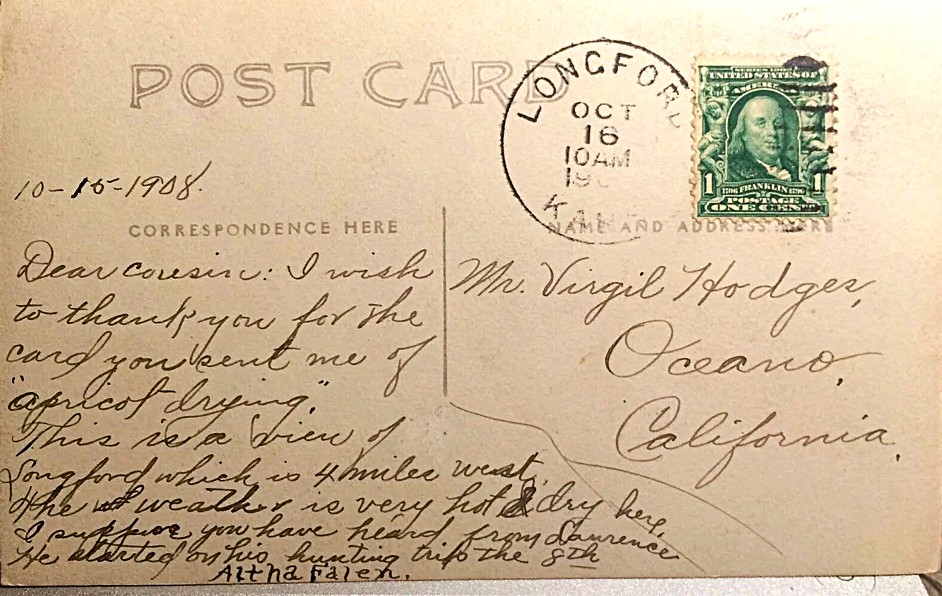 POST CARD
LONGFORD
OCT
16
10AM
190
KAN
SERIES 1902
UNITED STATES OF
AMERICA
1 1706 FRANKLIN 1790 1
POSTAGE
ONE CENT
10-15-1908.
CORRESPONDENCE HERE
NAME AND ADDRESS HERE
Dear cousin: I wish
to thank you for the
card you sent me of
"apricot drying."
This is a view of
Longford which is 4 miles west.
The weather is very hot & dry here,
I suppose you have heard from Lawrence
He started on his hunting trip the 8th
Altha Falen.
Mr. Virgil Hodges,
Oceano,
California.